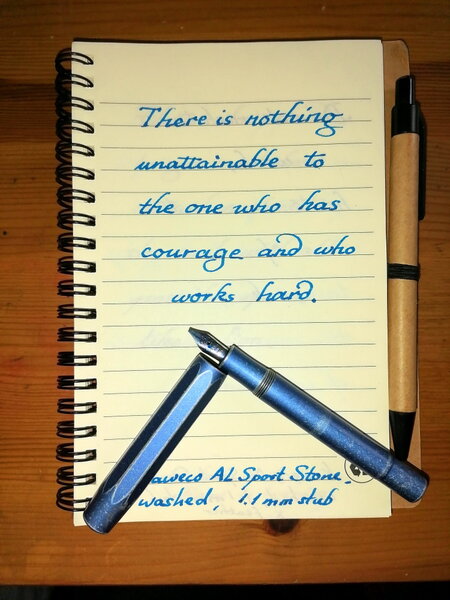 There is nothing
unattainable to
the one who has
courage and who
works hard.
aweco AL Sport Stone
washed, 1.1 mm stub